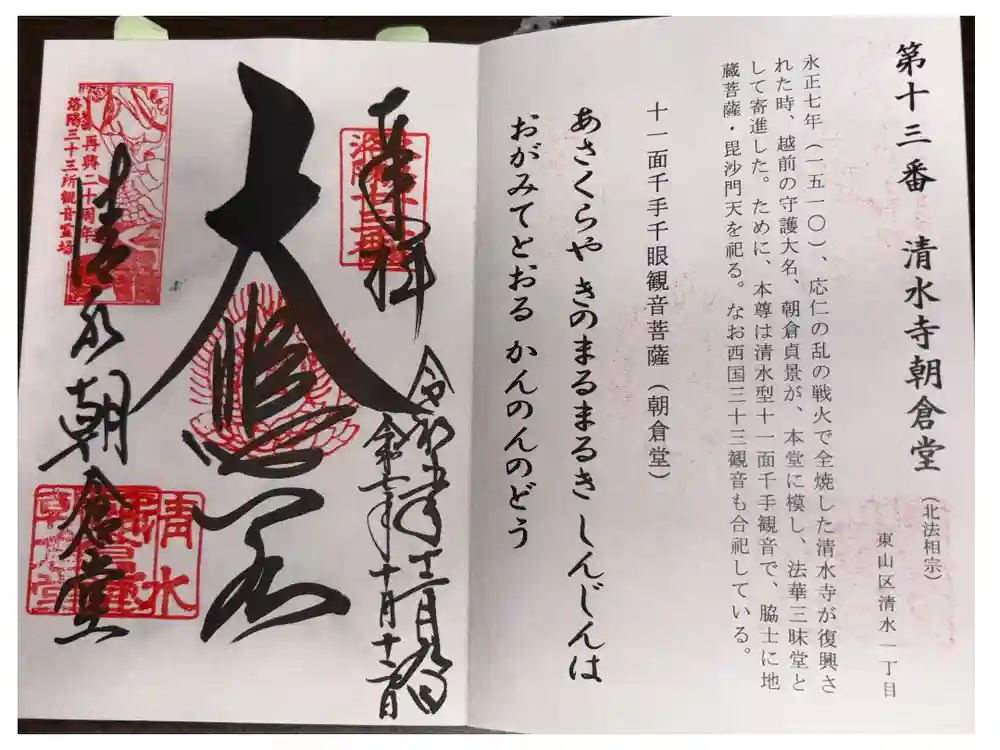 第十三番 清水寺朝倉堂(北法相宗)
東山区清水一丁目
永正七年(一五一〇)、応仁の乱の戦火で全焼した清水寺が復興さ
れた時、越前の守護大名、朝倉貞景が、本堂に模し、法華三昧堂と
して寄進した。ために、本尊は清水型十一面千手観音で、脇士に地
蔵菩薩・毘沙門天を祀る。なお西国三十三観音も合祀している。
十一面千手千眼観音菩薩(朝倉堂)
あさくらや きのまるまるき しんじんは
おがみてとおる かんのんのどう
奉拝
令和五年十二月九日
令和七年十月十一日
大悲閣
清水朝倉堂
再興二十周年
洛陽三十三所観音霊場
清水